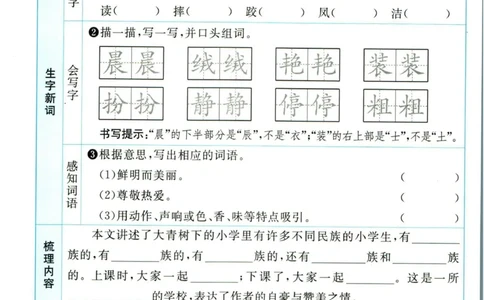 字
读(　　) 摔(　　) 跤(　　) 凤(　　) 洁(　　)
生字新词
会写字
❷描一描,写一写,并口头组词。
晨 晨 绒 绒 艳 艳 装 装
扮 扮 静 静 停 停 粗 粗
书写提示:“晨”的下半部分是“辰”,不是“衣”;“装”的右上部是“士”,不是“土”。
感知词语
❸根据意思,写出相应的词语。
(1)鲜明而美丽。 (　　)
(2)尊敬热爱。 (　　)
(3)用动作、声响或色、香、味等特点吸引。 (　　)
梳理内容
本文讲述了大青树下的小学里有许多不同民族的小学生,有______
族的,有______族的,有______族的,还有______族和______族
的。上课时,大家一起______;下课了,大家一起______。这是一所
______的学校,表达了作者的自豪与赞美之情。